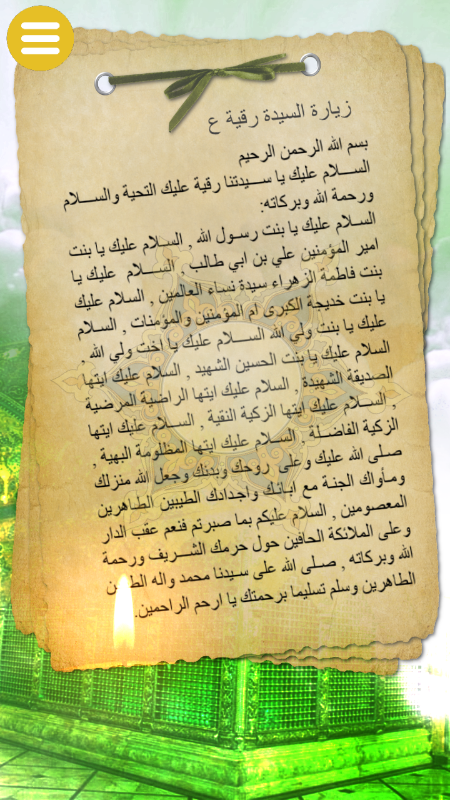 زيارة السيدة رقية ع
بسم الله الرحمن الرحيم
الســـلام عليك يا ســـيدتنا رقية عليك التحية والســـلام
ورحمة الله وبركاته:
الســـلام عليك يا بنت رسـول الله , السـلام عليك يا بنت
امير المؤمنين علي بن ابي طالب , الســـلام عليك يا
بنت فاطمة الزهراء سيدة نساء العالمين , السلام عليك
يا بنت خديجة الكبرى ام المؤمنين والمؤمنات , السلام
عليك يا بنت ولي الله الســـلام عليك يا اخت ولي الله ,
السلام عليك يا بنت الحسين الشهيد , السلام عليك ايتها
الصديقة الشهيدة , السلام عليك ايتها الراضية المرضية
, الســلام عليك ايتها الزكية النقية , الســلام عليك ايتها
الزكية الفاضـلة , السلام عليك ايتها المظلومة البهية ,
صـلى الله عليك وعلى روحك وبدنك وجعل الله منزلك
ومـأواك الجنـة مع ابـائـك واجـدادك الطيبين الطـاهرين
المعصومين , السلام عليكم بما صبرتم فنعم عقب الدار
وعلى الملائكة الحافين حول حرمك الشــريف ورحمة
الله وبركاته , صـلى الله على سـيدنا محمد واله
الطاهرين وسلم تسليما برحمتك يا ارحم الراحمين.